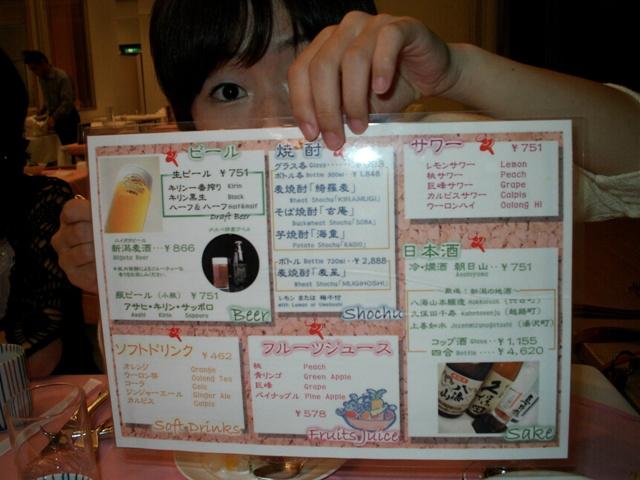 ビール
生ビール ￥751
キリン一番搾り Kirin
キリン黒生 Black
ハーフ&ハーフ Half&Half
Draft Beer
新潟麦酒 … ￥866
Niigata Beer
瓶ビール (小瓶) ￥751
アサヒ・キリン・サッポロ
Asahi Kirin Sapporo
Beer
焼酎
グラス各 Glass
ボトル各 Bottle 300ml … ￥1,848
麦焼酎「綺羅麦」
Wheat Shochu「KIRAMUGI」
そば焼酎「玄庵」
Buckwheat Shochu「SOBA」
芋焼酎「海童」
Potato Shochu「KAIDO」
ボトル Bottle 720ml … ￥2,888
麦焼酎「麦風」
Wheat Shochu「MUGIHOSHI」
レモン または 梅干付
with Lemon or Umeboshi
Shochu
サワー ￥751
レモンサワー Lemon
桃サワー Peach
巨峰サワー Grape
カルピスサワー Calpis
ウーロンハイ Oolong Hi
日本酒
冷・燗酒 朝日山 … ￥751
Asahiyama
八海山本醸造 Hakkaisan
久保田千寿 Kubotasenju (越路町)
上善如水 Jozenmizunogotoshi (湯沢町)
コップ酒 Glass … ￥1,155
四合 Bottle … ￥4,620
Sake
ソフトドリンク ￥462
オレンジ Orange
ウーロン茶 Oolong Tea
コーラ Cola
ジンジャーエール Ginger Ale
カルピス Calpis
Soft Drinks
フルーツジュース
桃 Peach
青リンゴ Green Apple
巨峰 Grape
パイナップル Pine Apple
￥578
Fruits Juice